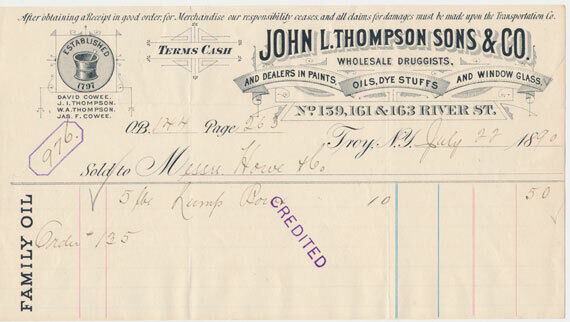 After obtaining a Receipt in good order, for Merchandise our responsibility ceases, and all claims for damages must be made upon the Transportation Co.
ESTABLISHED
1797
DAVID COWEE.
J. I. THOMPSON.
W. A. THOMPSON.
JAS. F. COWEE.
TERMS CASH
JOHN L. THOMPSON SONS & CO.
WHOLESALE DRUGGISTS,
AND DEALERS IN PAINTS OILS, DYE STUFFS AND WINDOW GLASS,
Nº 159, 161 & 163 RIVER ST.
O.B. 144 Page 263
Troy, N.Y. July 22 1890
976.
Sold to Messrs Howe & Co.
5 lbs Lump 10 50
CREDITED
Order 135
FAMILY OIL